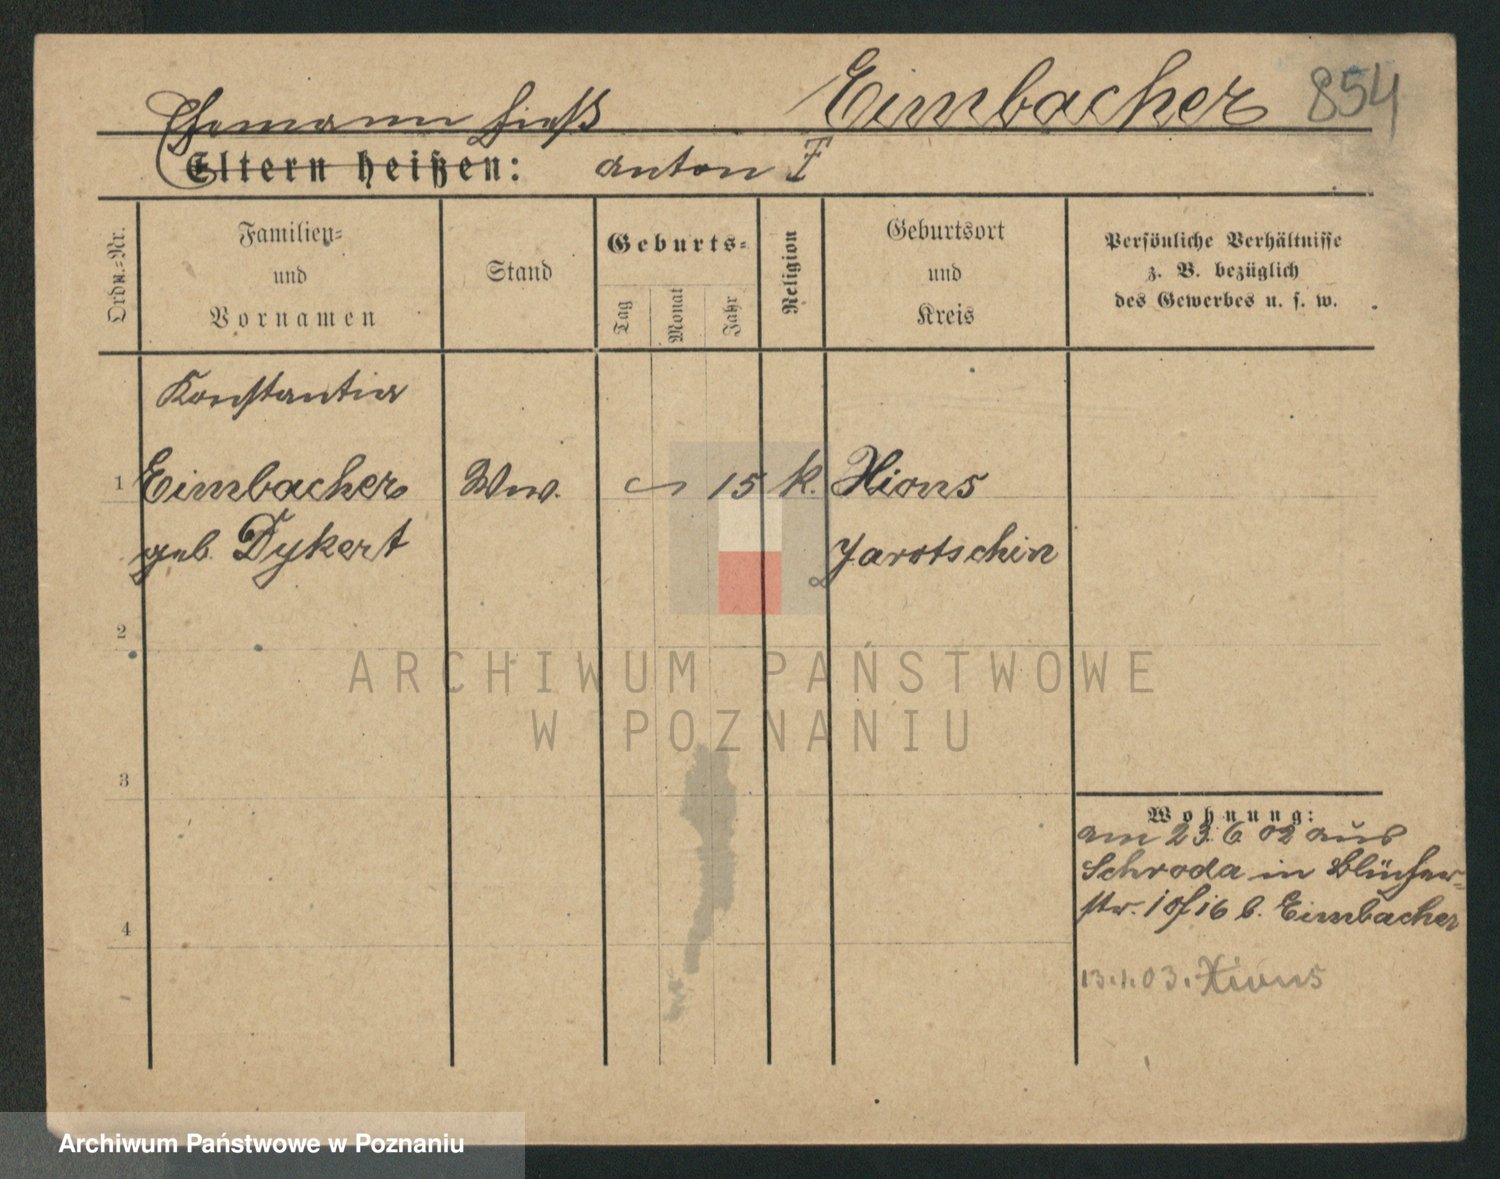 Eimbacher 854
Ehemann hieß
Eltern heißen: Anton F
Ordn.-Nr.
Familien-
und
Vornamen
Stand
Geburts-
Tag
Monat
Jahr
Religion
Geburtsort
und
Kreis
Persönliche Verhältnisse
z. B. bezüglich
des Gewerbes u. s. w.
Konstantia
1 Eimbacher Ww. 15 k. Xions
geb. Dykert Jarotschin
2
ARCHIWUM PAŃSTWOWE
W POZNANIU
3
Wohnung:
am 23.6 02 aus
Schroda in Blücher-
str. 10/16 b. Eimbacher
4
13.1.03. Xions
Archiwum Państwowe w Poznaniu